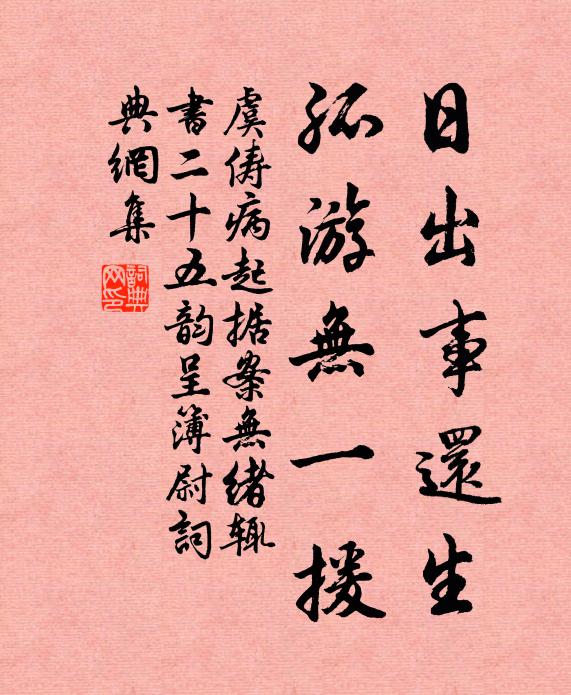 日出事還生
孤游無一援
虞俦病起据案無緒輒
書二十五韵呈簿尉詞
典網集
詞典网印